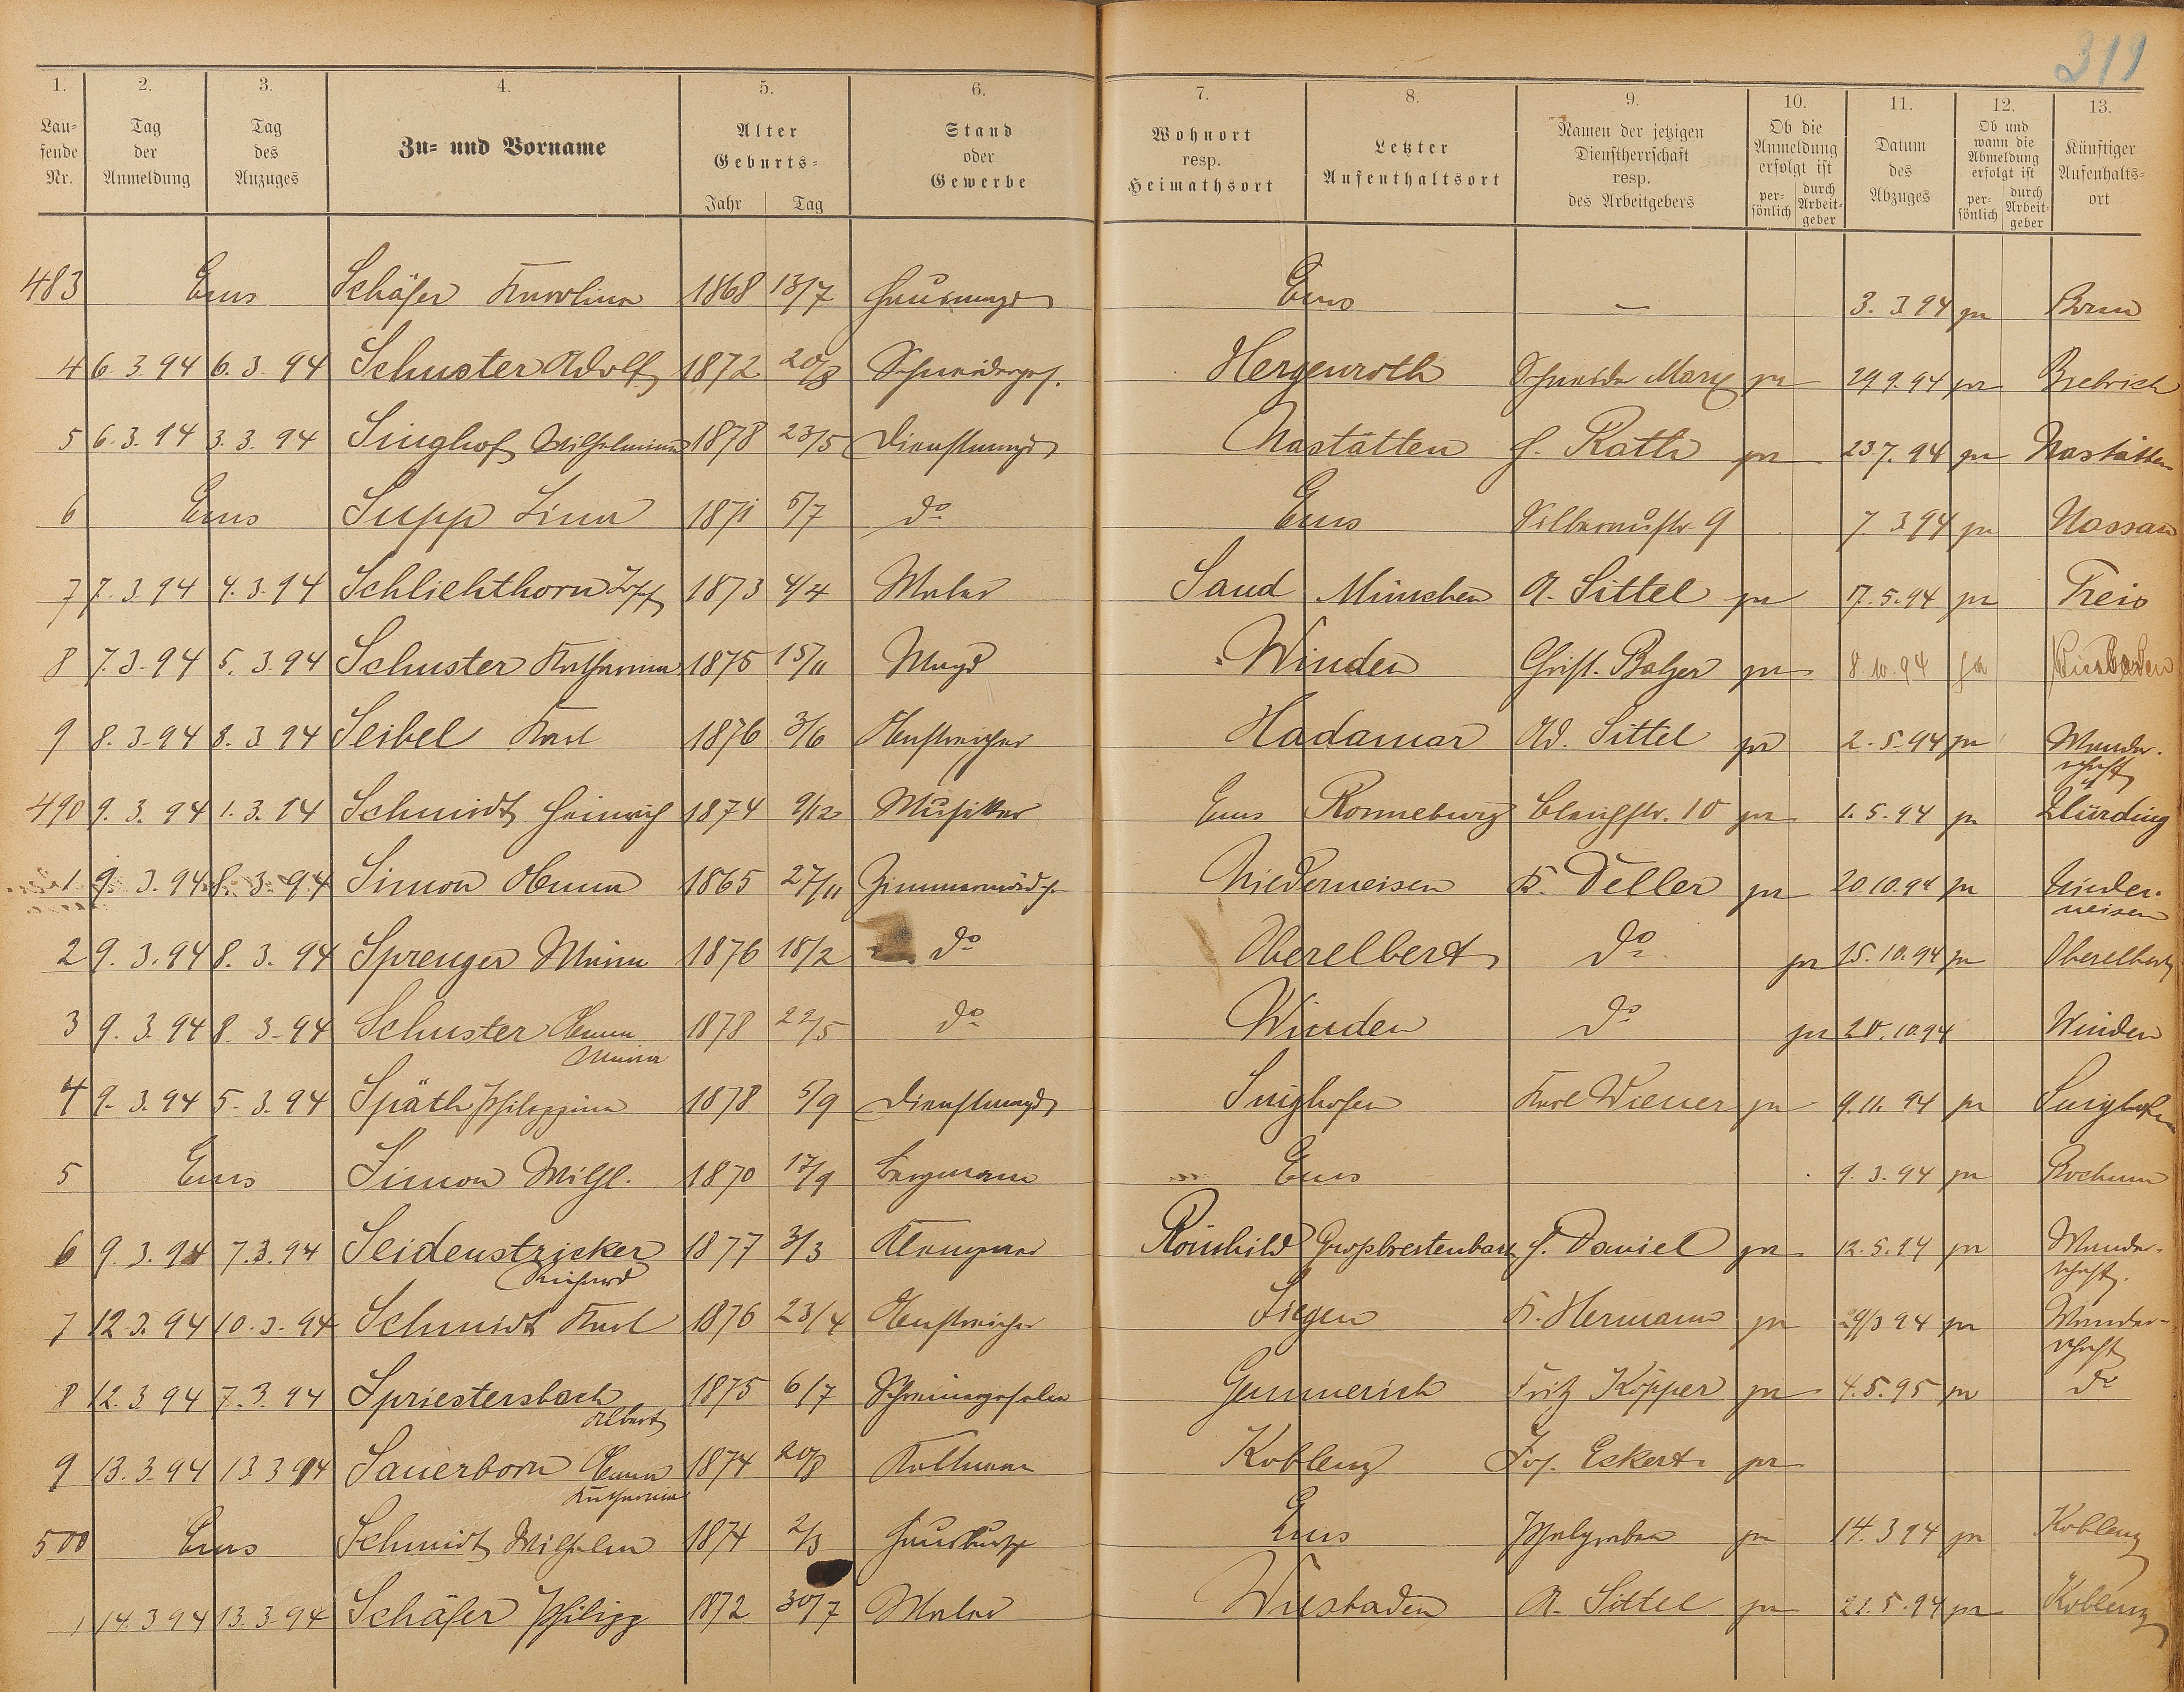 319
1. 2. 3. 4. 5. 6. 7. 8. 9. 10. 11. 12. 13.
Lau=fende Nr. Tag der Anmeldung Tag des Anzuges Zu= und Vorname Alter Geburts= Jahr Tag Stand oder Gewerbe Wohnort resp. Heimathsort Letzter Aufenthaltsort Namen der jetzigen Dienstherrschaft resp. des Arbeitgebers Ob die Anmeldung erfolgt ist per=sönlich durch Arbeit=geber Datum des Abzuges Ob und wann die Abmeldung erfolgt ist per=sönlich durch Arbeit=geber Künftiger Aufenhalts=ort
483 Ems Schäfer Karolina 1868 13/7 Hausmagd Ems — 3. 3 94 pr Bonn
4 6. 3. 94 6. 3. 94 Schuster Adolf 1872 20/8 Schneiderges. Hergenroth Schneider Marx pr 29. 9. 94 pr Biebrich
5 6. 3. 94 3. 3. 94 Singhof Wilhelmine 1878 23/5 Dienstmagd Nastätten H. Rath pr 23 7. 94 pr Nastätten
6 Ems Supp Lina 1871 5/7 do Ems Silberaustr. 9 7. 3 94 pr Nassau
7 7. 3. 94 4. 3. 94 Schlichthorn Josef 1873 4/4 Maler Sand München A. Sittel pr 17. 5. 94 pr Treis
8 7. 3. 94 5. 3. 94 Schuster Katharina 1875 15/11 Magd Winden Christ. Balzer pr 8. 10. 94 pr Wiesbaden
9 8. 3. 94 8. 3 94 Seibel Karl 1876 3/6 Anstreicher Hadamar Ad. Sittel pr 2. 5. 94 pr Wander-
schaft
490 9. 3. 94 1. 3. 94 Schmidt Heinrich 1874 9/12 Musiker Ems Ronneburg 10 pr 1. 5. 94 pr
1 9. 3. 94 8. 3. 94 Simon Anna 1865 27/11 Zimmermädch. Niederneisen K. Deller pr 20. 10. 94 pr Nieder-
neisen
2 9. 3. 94 8. 3. 94 Sprenger Maria 1876 18/2 do Oberelbert do pr 15. 10. 94 pr Oberelbert
3 9. 3. 94 8. 3. 94 Schuster Anna 1878 22/5 do Winden do pr 20. 10. 94 Winden
Maria
4 9. 3. 94 5. 3. 94 Späth Philippina 1878 5/9 Dienstmagd Singhofen Karl Wiener pr 9. 11. 94 pr Singhofen
5 Ems Simon Wilhl. 1870 17/9 Bergmann Ems 9. 3. 94 pr Bochum
6 9. 3. 94 7. 3. 94 Seidenstricker 1877 3/3 Klempner Römhild Grossbreitenbach H. Daniel pr 12. 5. 94 pr Wander-
Richard schaft.
7 12. 3. 94 10. 3. 94 Schmidt Karl 1876 23/4 Anstreicher Siegen K. Hermann pr 29/3 94 pr Wander-
schaft
8 12. 3 94 7. 3. 94 Spriestersbach 1875 6/7 Schreinergeselle Gemmerich Fritz Köpper pr 4. 5. 95 pr do
Albert
9 13. 3. 94 13 3 94 Sauerborn Anna 1874 20/8 Koblenz Jos. Eckert pr
Katharina
500 Ems Schmidt Wilhelm 1874 2/3 Hausbursche Ems Pfahlgraben pr 14. 3 94 pr Koblenz
1 14. 3 94 13. 3. 94 Schäfer Philipp 1872 30/7 Maler Wiesbaden A. Sittel pr 22. 5. 94 pr Koblenz